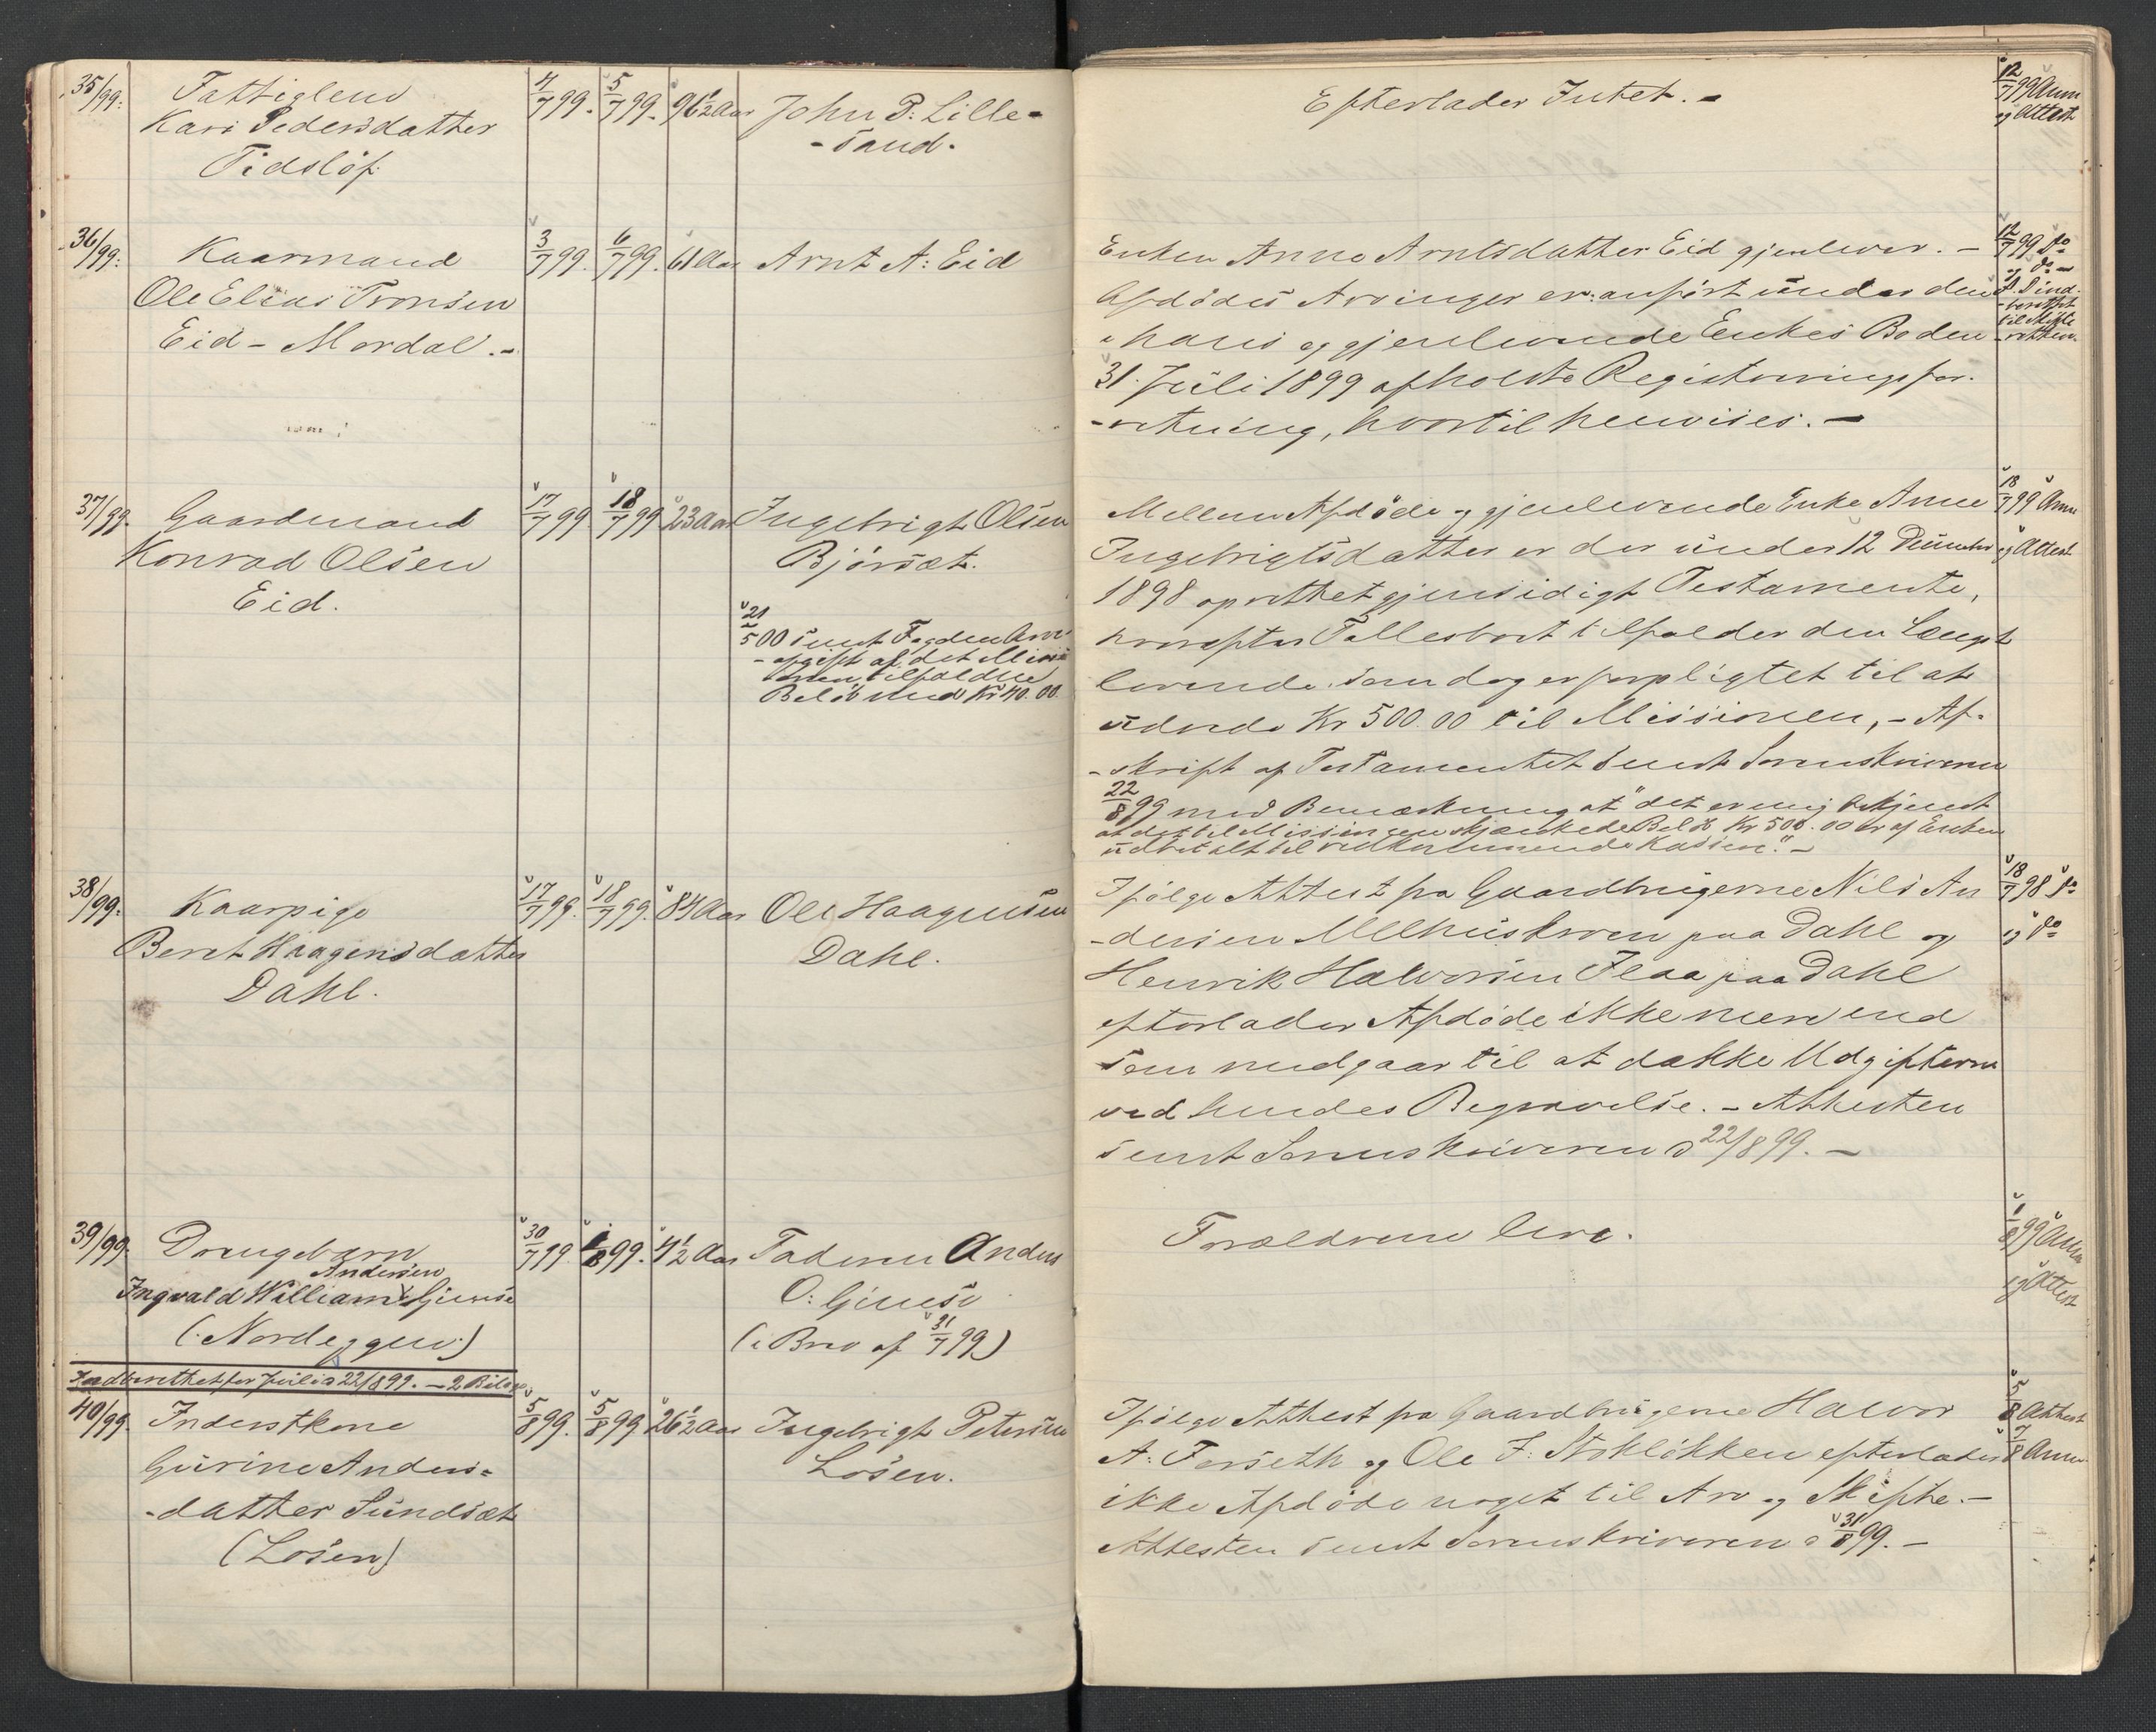 35/99.
Fattiglem
Kari Pedersdatter
Tidsløf.
4/7 99.
5/7 99.
96½ Aar
John P. Lille-
-sand.
Efterlader Intet. -
12/7 99 Anm
og Attest
36/99.
Kaarmand
Ole Elias Tronsen
Eid - Mordal. -
3/7 99.
6/7 99.
61 Aar
Arnt A: Eid
Enken Anne Arntsdatter Eid gjenlever. -
Afdødes Arvinger er anført under den
i hans og gjenlevende Enkes Bo den
31. Juli 1899 afholdte Registreringsfor-
-retning, hvortil henvises. -
12/7 99 do
og do -
37/99.
Gaardmand
Konrad Olsen
Eid.
17/7 99
18/7 99
23 Aar
Ingebrigt Olsen
Bjørsæt.
21/5 00 sendt Fogden Arve-
-afgift af det Missi-
onen tilfaldne
Beløb med Kr 40.00.
Mellem Afdøde og gjenlevende Enke Anne
Ingebrigtsdatter er der under 12 Decmbr
1898 oprettet gjensidigt Testamente,
hvorefter Fællesboet tilfalder den Længst
levende som dog er forpligtet til at
udrede Kr 500.00 til Missionen, - Af-
-skrift af Testamentet sendt Sorenskriveren
22/8 99 med Bemærkning at "det er mig bekjendt
at det til Missionen skjænkede Beløb Kr 500.00 er af Enken
udbetalt til vedkommende Kasser." -
18/7 99 Anm
og Attest
38/99.
Kaarpige
Beret Haagensdatter
Dahl.
17/7 99.
18/7 99.
84 Aar
Ole Haagensen
Dahl.
Ifølge Attest fra Gaardbrugerne Nils An
-dersen Melhuskroen paa Dahl og
Henrik Halvorsen Flaa paa Dahl
efterlader Afdøde ikke mere end
som medgaar til at dække Udgifterne
ved hendes Begravelse. - Attesten
sendt Sorenskriveren d 22/8 99. -
18/7 98 do
og do
39/99.
Drengebarn
Andersen
Ingvald William Gjuuse
(Nordeggen)
30/7 99
1/8 99.
4½ Aar
Faderen Anders
O: Gjuuse
(i Brev af 31/7 99)
Forældrene leve.
1/8 99 Anm
og Attest
Indberettet for Juli d 22/8 99. - 2 Bilag
40/99.
Inderstkone
Gurine Anders-
-datter Sundsæt
(Løsen)
5/8 99.
5/8 99
26½ Aar
Ingebrigt Petersen
Løsen.
Ifølge Attest fra Gaardbrugerne Halvor
A: Forseth og Ole J: Stokløkken efterlader
ikke Afdøde noget til Arv og Skifte. -
Attesten sendt Sorenskriveren d 31/8 99. -
5/8 Attest
7/8 Anm